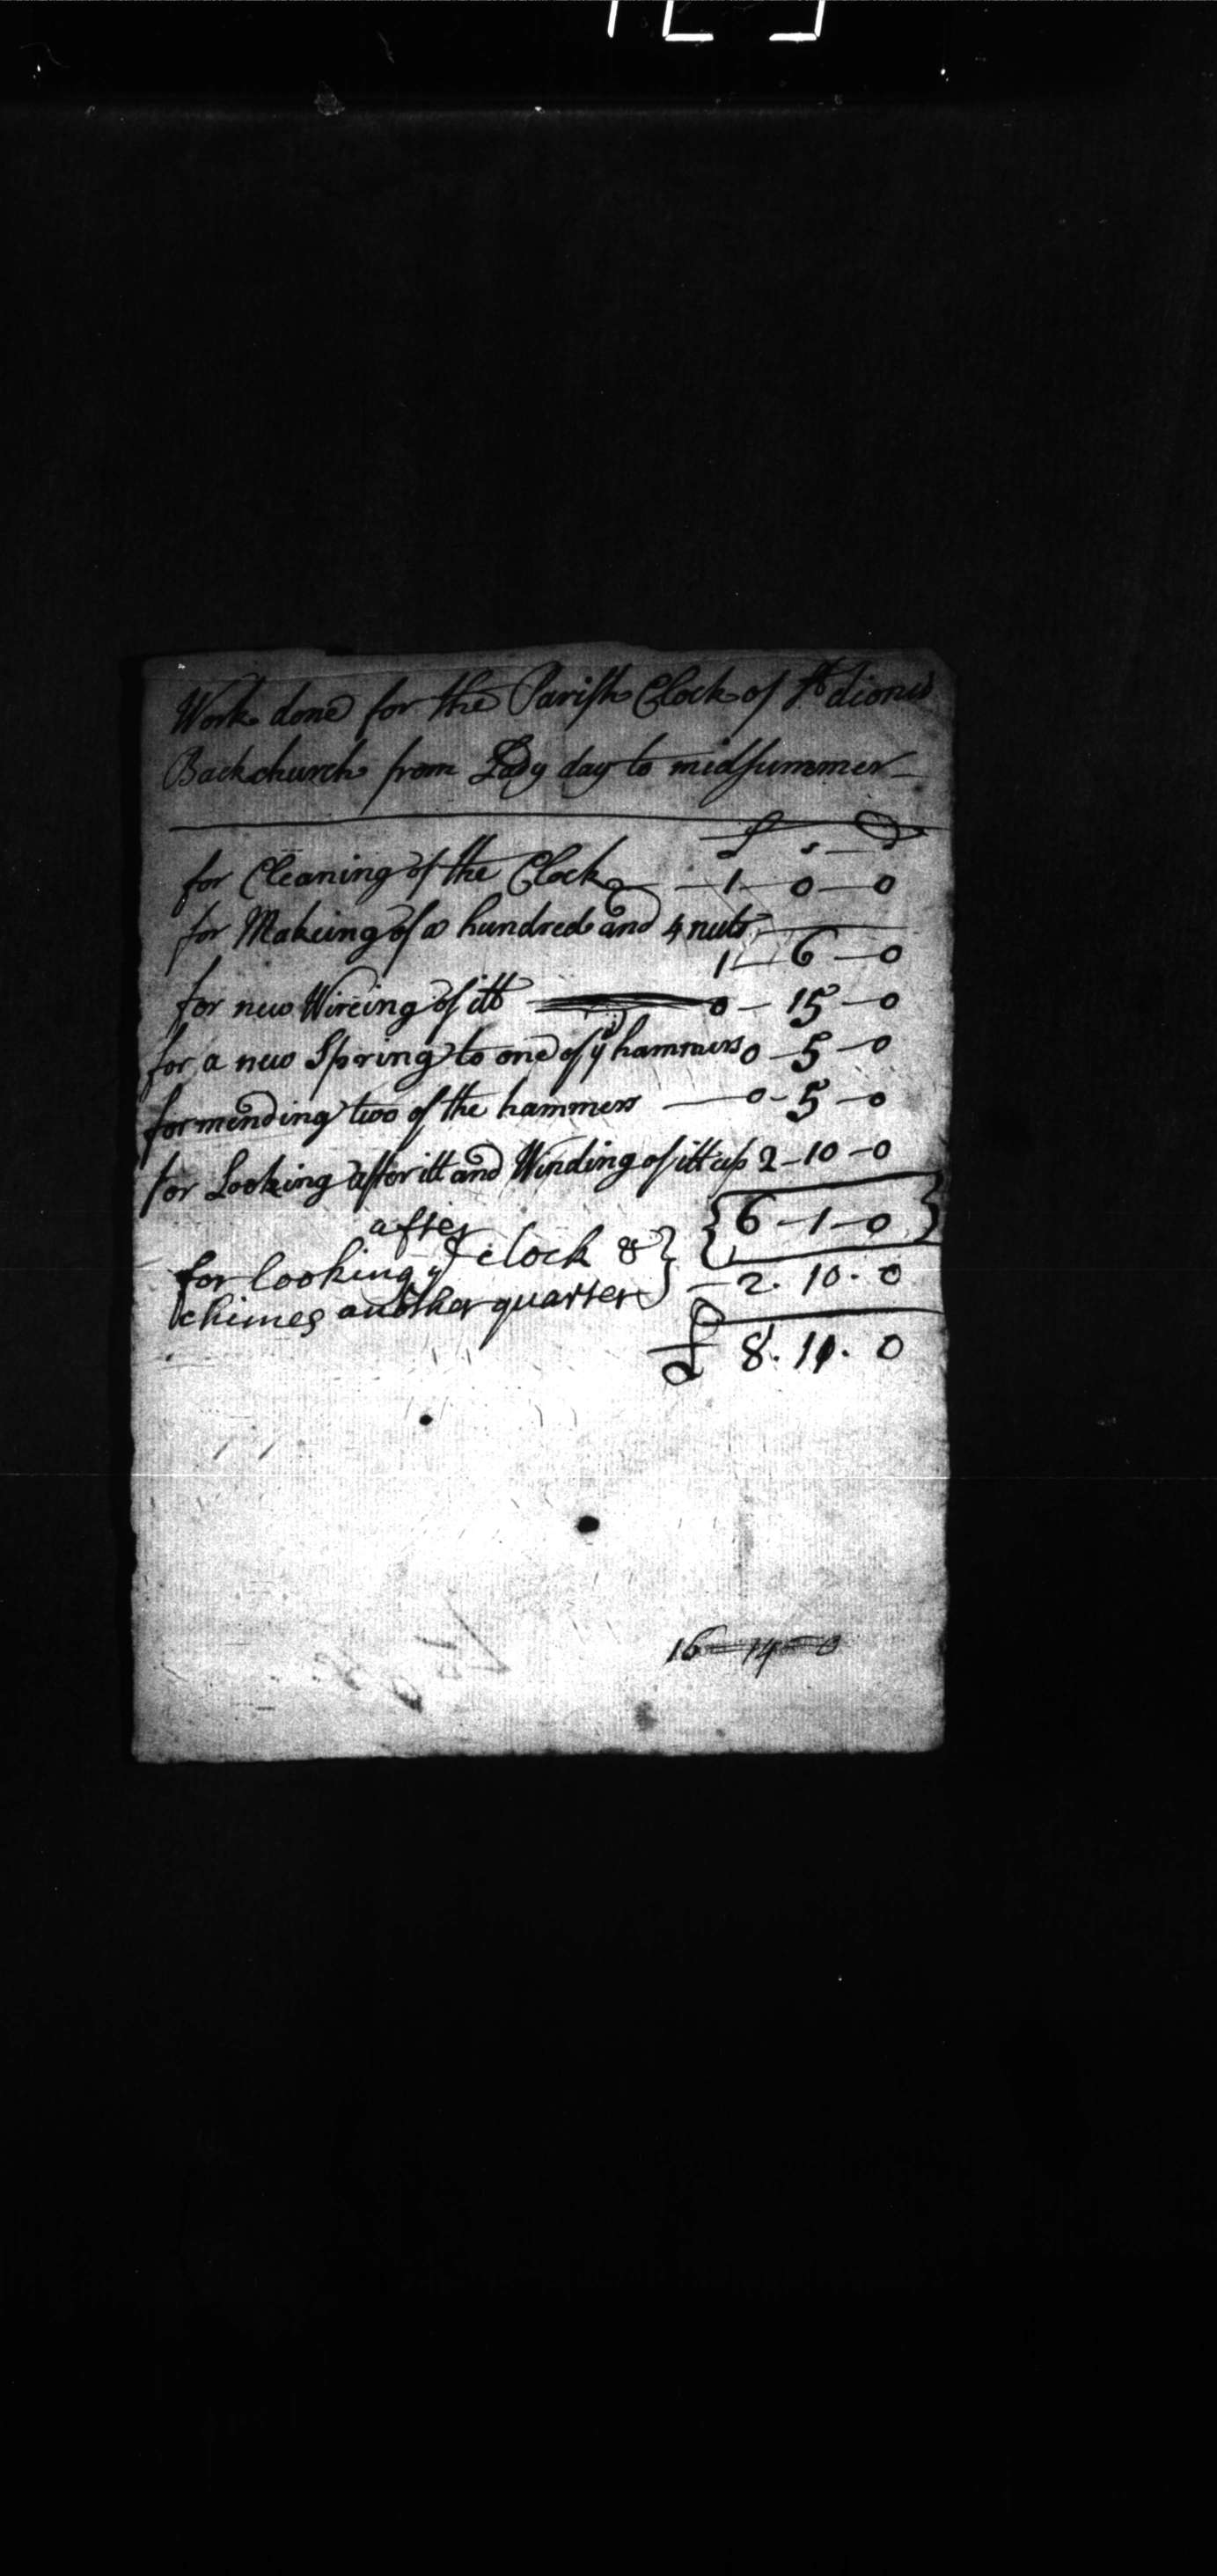 Work done for the Parish Clock of St dionis
Backchurch from Lady day to midsummer
£ s d
for Cleaning of the Clock 1 - 0 - 0
for Makeing of a hundred and 4 nuts
1 - 6 - 0
for new Wireing of itt 0 - 15 - 0
for a new Spring to one of ye hammers 0 - 5 - 0
for mending two of the hammers 0 - 5 - 0
for Looking after itt and Winding of itt up 2 - 10 - 0
6 - 1 - 0
after
for looking ye clock &
chimes another quarter 2. 10. 0
£ 8. 11. 0
16 - 14 - 0